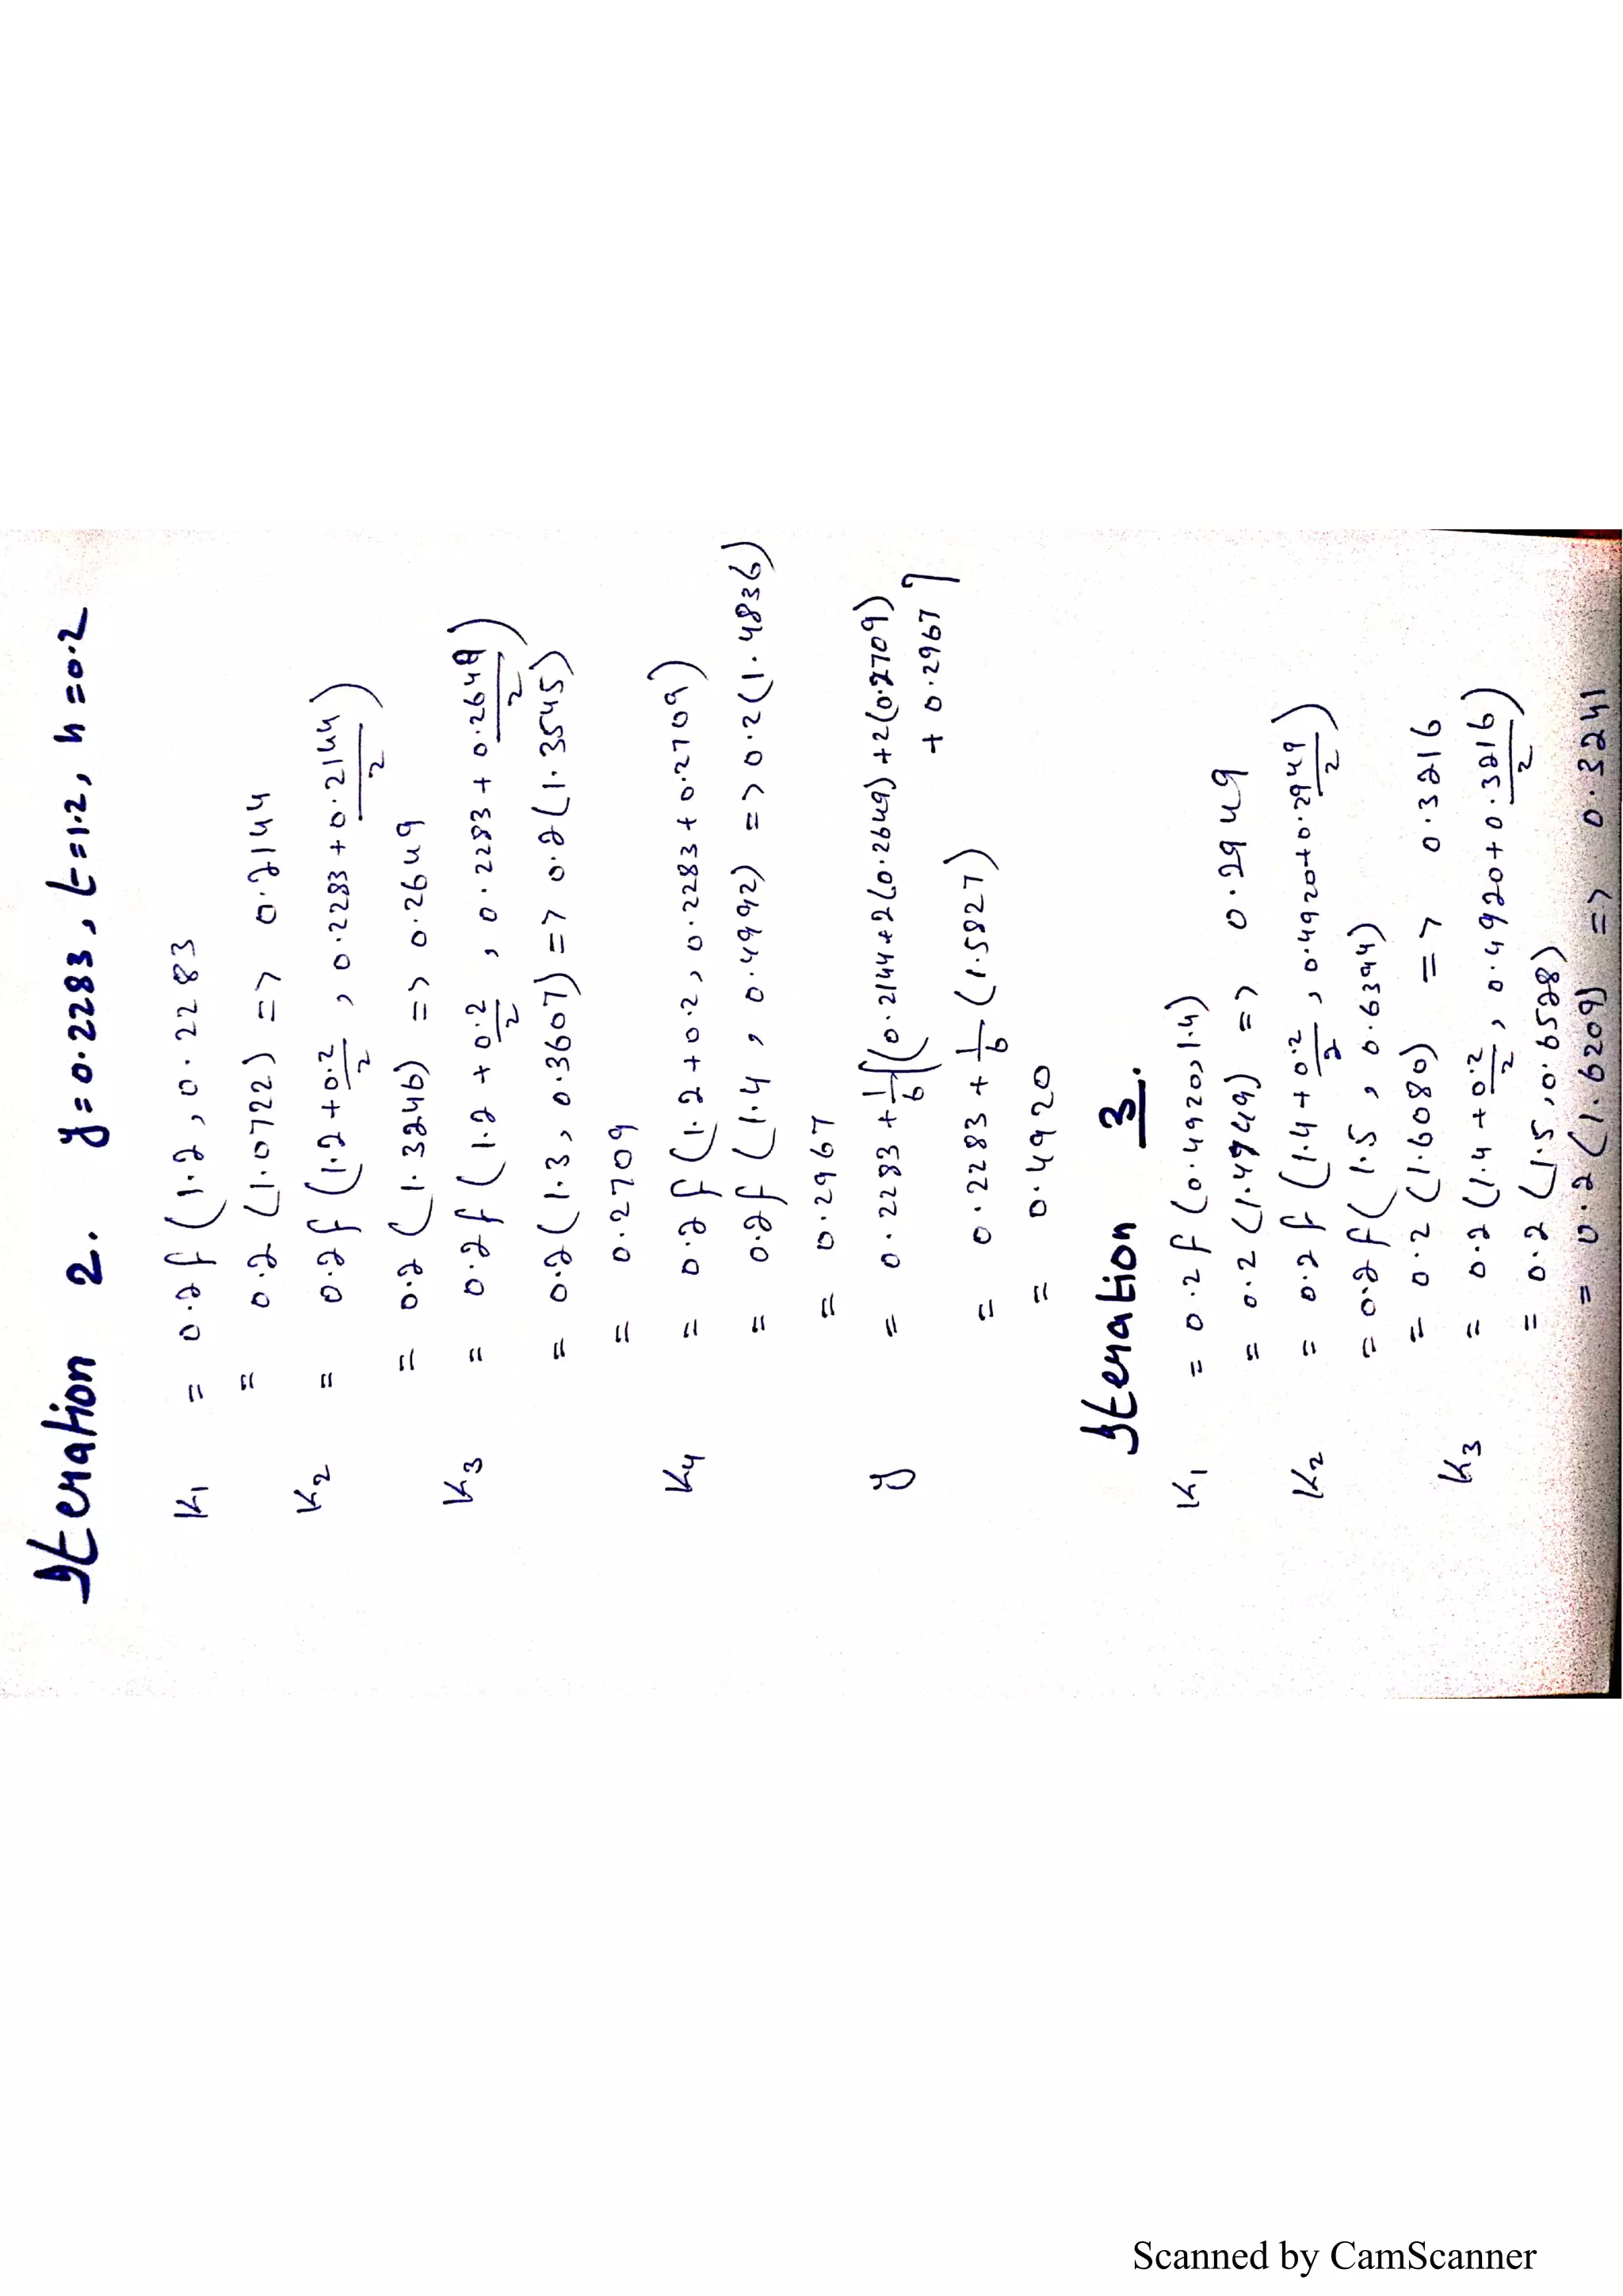 Iteration 2. y=0.2283, t=1.2, h=0.2
K1 = 0.2f(1.2, 0.2283
= 0.2(1.0722) => 0.2144
K2 = 0.2f(1.2+0.2/2, 0.2283+0.2144/2)
= 0.2(1.3246) => 0.2649
K3 = 0.2f(1.2+0.2/2, 0.2283+0.2649/2)
= 0.2(1.3, 0.3607) => 0.2(1.3545)
= 0.2709
K4 = 0.2f(1.2+0.2, 0.2283+0.2709)
= 0.2f(1.4, 0.4992) => 0.2(1.4836)
= 0.2967
y = 0.2283+1/6[(0.2144+2(0.2649)+2(0.2709)
+0.2967]
= 0.2283+1/6(1.5827)
= 0.4920
Iteration 3.
K1 = 0.2f(0.4920,1.4)
= 0.2(1.4749) => 0.2949
K2 = 0.2f(1.4+0.2/2, 0.4920+0.2949/2)
=0.2f(1.5, 0.6394)
= 0.2(1.6080) => 0.3216
K3 = 0.2(1.4+0.2/2, 0.4920+0.3216/2)
= 0.2(1.5, 0.6528)
= 0.2(1.6209) => 0.3241
Scanned by CamScanner